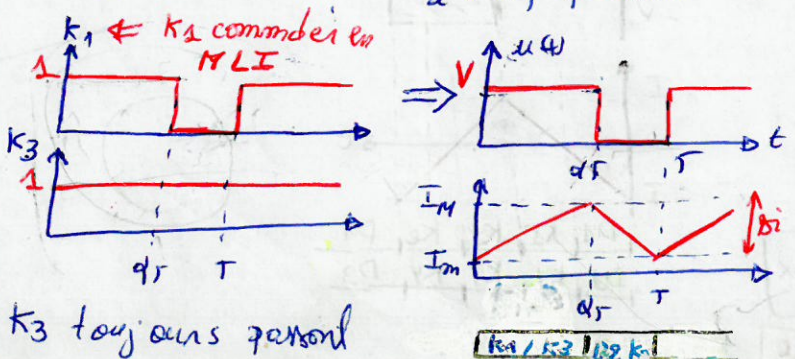 K1 ⇐ K1 commdée en
MLI
1
K3
1
αT T
K3 toujours passant
⇒ V u(t)
t
αT T
IM
Im
Δi
αT T